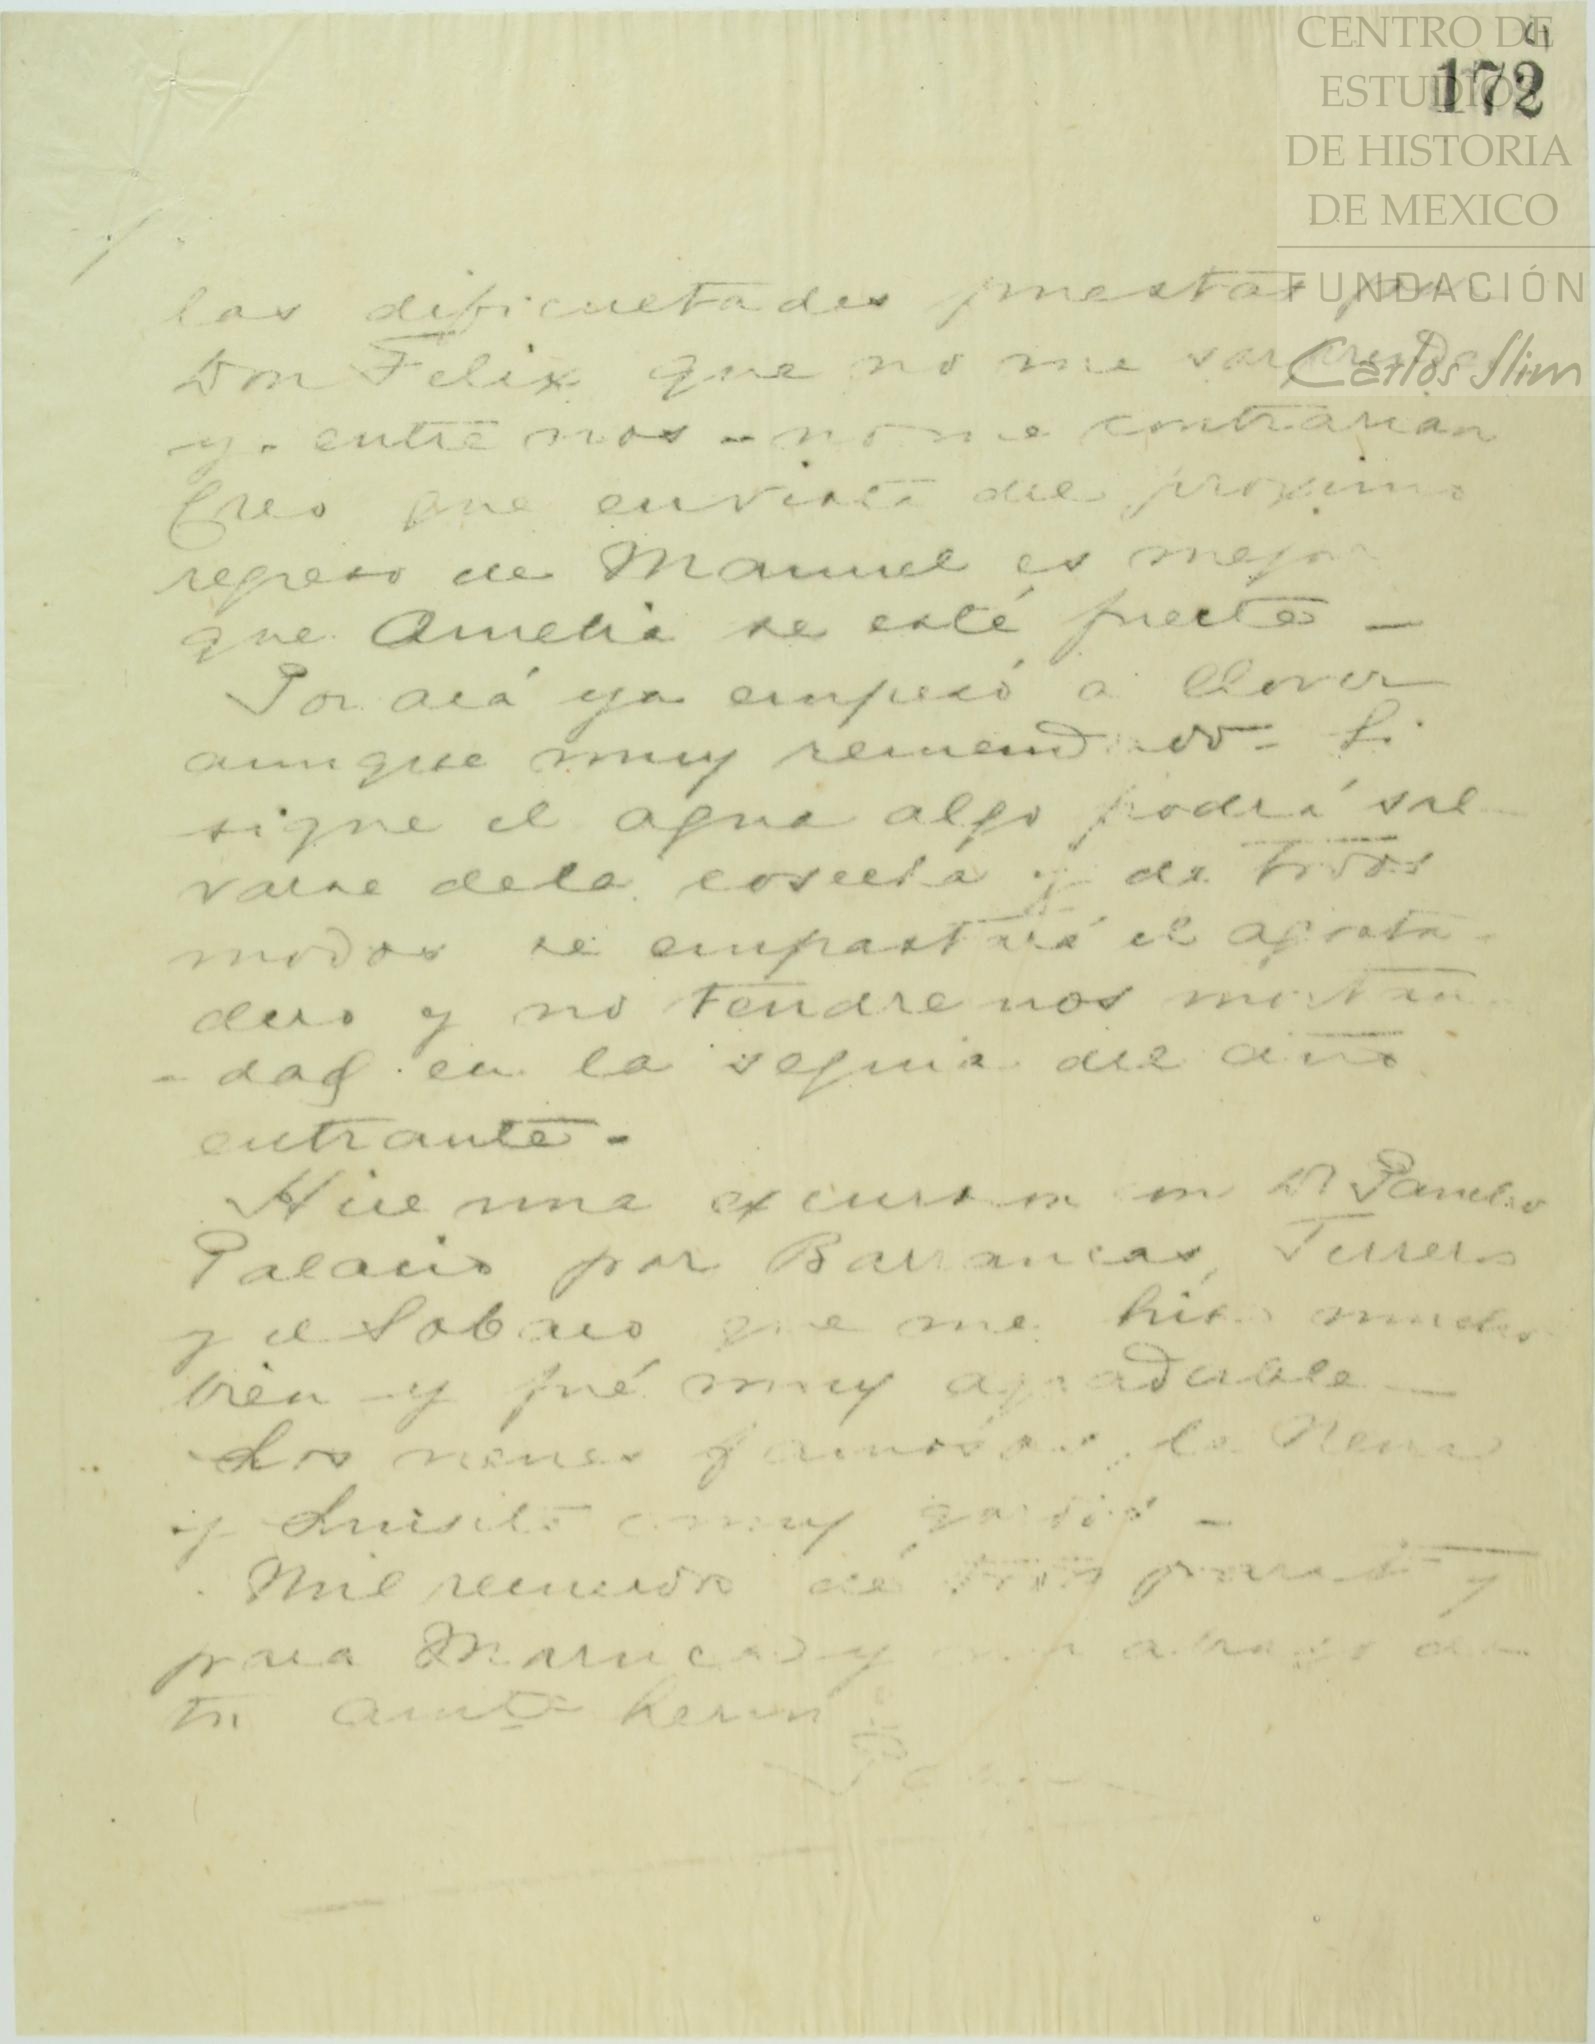 CENTRO DE
ESTUDIOS
DE HISTORIA
DE MEXICO
FUNDACIÓN
Carlos Slim
172
las dificultades puestas por
Don Felix que no me sorprenden
y - entre nos - no me contrarian
Creo que en vista del proximo
regreso de Manuel es mejor
que Amelia se esté quieta -
Por acá ya empesó a llover
aunque muy remendado - Si
sigue el agua algo podrá sal
varse de la cosecha y de todos
modos se empastará el agosta -
dero y no tendremos mortan
- dad en la sequia del año
entrante -
Hice una excursion con Dn Pancho
Palacio por Barrancas, Terrero
y el Sobaco que me hiso mucho
bien y fué muy agradable -
Los nenes famosos, la Nena
y Luisito muy gordos -
Mil recuerdos de todos para ti y
para Marucas y un abrazo de
tu amte herm